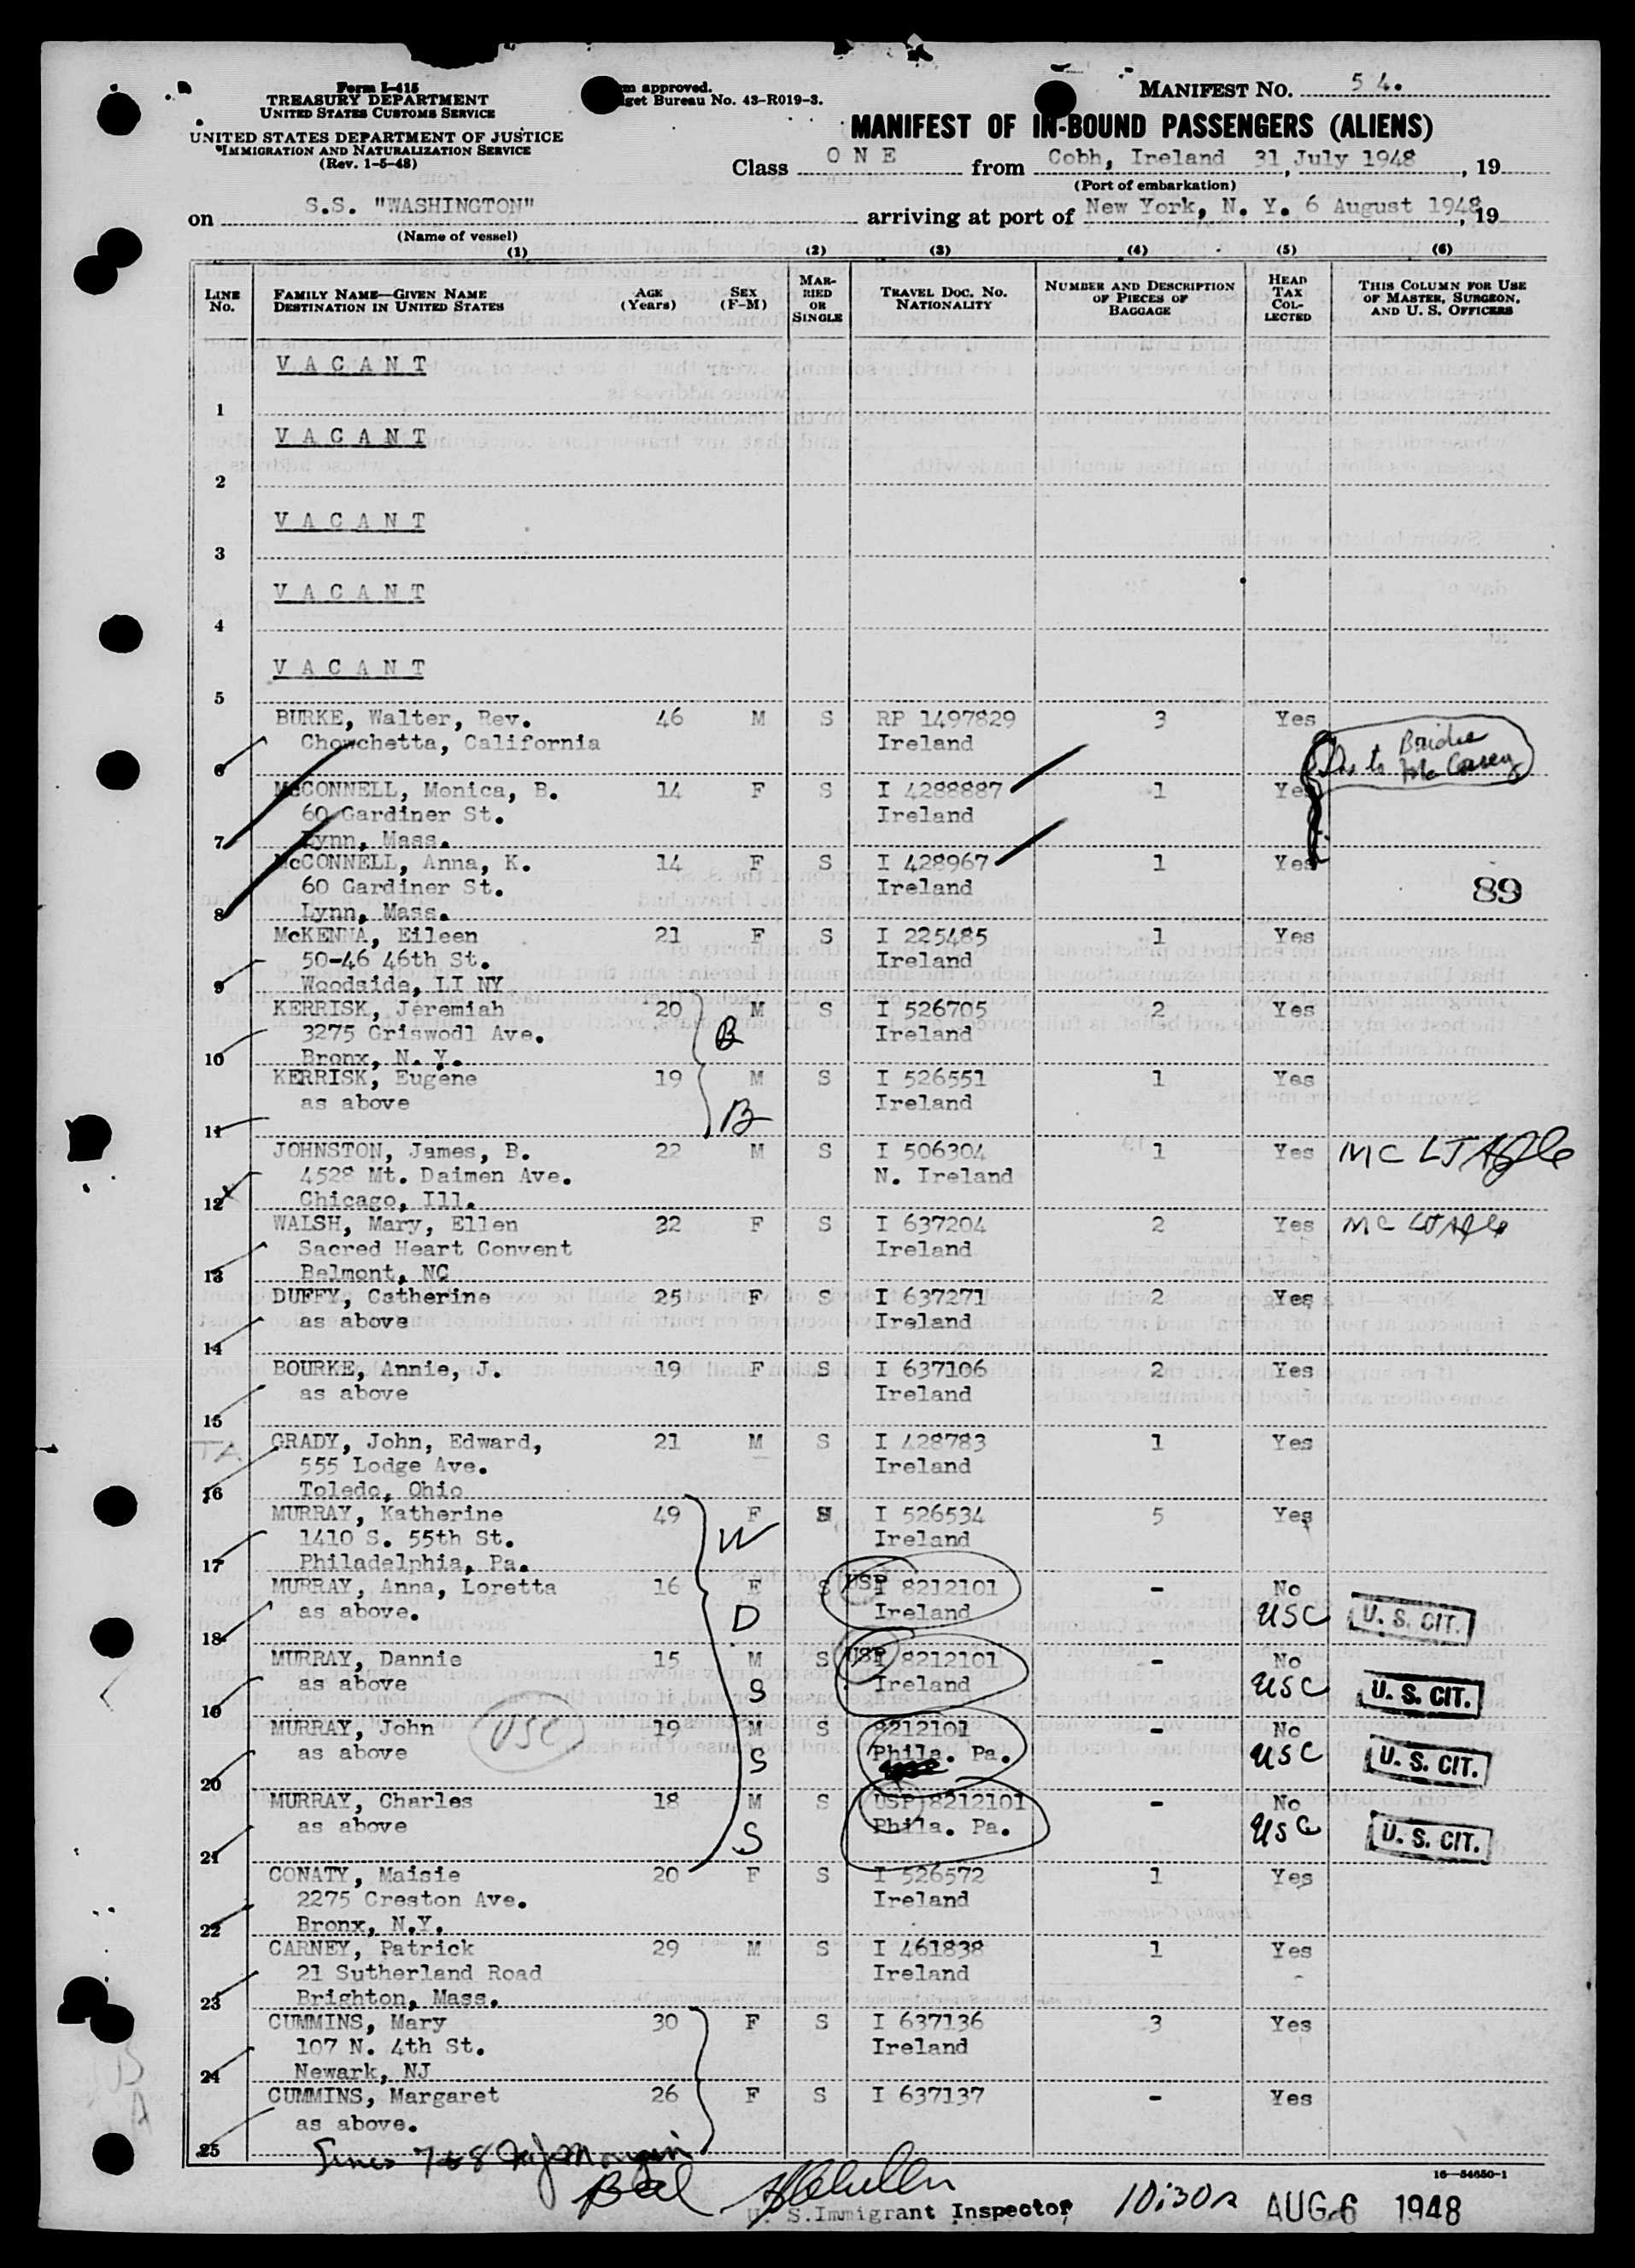 Form I-415
TREASURY DEPARTMENT
UNITED STATES CUSTOMS SERVICE
UNITED STATES DEPARTMENT OF JUSTICE
IMMIGRATION AND NATURALIZATION SERVICE
(Rev. 1-5-48)
approved.
get Bureau No. 43-R019-3.
MANIFEST NO. 54.
MANIFEST OF IN-BOUND PASSENGERS (ALIENS)
Class O N E from Cobh, Ireland 31 July 1948, 19
(Port of embarkation)
on S.S. "WASHINGTON" arriving at port of New York, N. Y. 6 August 1948, 19
(Name of vessel)
(1) (2) (3) (4) (5) (6)
LINE No. FAMILY NAME—GIVEN NAME DESTINATION IN UNITED STATES AGE (Years) SEX (F-M) MARRIED OR SINGLE TRAVEL DOC. NO. NATIONALITY NUMBER AND DESCRIPTION OF PIECES OF BAGGAGE HEAD TAX COLLECTED THIS COLUMN FOR USE OF MASTER, SURGEON, AND U. S. OFFICERS
V A C A N T
1
V A C A N T
2
V A C A N T
3
V A C A N T
4
V A C A N T
5
BURKE, Walter, Rev. 46 M S RP 1497829 3 Yes
Chowchetta, California Ireland
6
McCONNELL, Monica, B. 14 F S I 4288887 1 Yes
60 Gardiner St. Ireland
7 Lynn, Mass.
McCONNELL, Anna, K. 14 F S I 428967 1 Yes
60 Gardiner St. Ireland 89
8 Lynn, Mass.
McKENNA, Eileen 21 F S I 225485 1 Yes
50-46 46th St. Ireland
9 Woodside, LI NY
KERRISK, Jeremiah 20 M S I 526705 2 Yes
3275 Griswodl Ave. B Ireland
10 Bronx, N. Y.
KERRISK, Eugene 19 M S I 526551 1 Yes
as above B Ireland
11
JOHNSTON, James, B. 22 M S I 506304 1 Yes
4528 Mt. Daimen Ave. N. Ireland
12 Chicago, Ill.
WALSH, Mary, Ellen 32 F S I 637204 2 Yes
Sacred Heart Convent Ireland
13 Belmont, NC
DUFFY, Catherine 25 F S I 637271 2 Yes
as above Ireland
14
BOURKE, Annie, J. 19 F S I 637106 2 Yes
as above Ireland
15
TA GRADY, John, Edward, 21 M S I 428783 1 Yes
555 Lodge Ave. Ireland
16 Toledo, Ohio
MURRAY, Katherine 49 F I 526534 5 Yes
1410 S. 55th St. W Ireland
17 Philadelphia, Pa.
MURRAY, Anna, Loretta 16 F S USP 8212101 - No
as above. D Ireland USC U. S. CIT.
18
MURRAY, Dannie 15 M S USP 8212101 - No
as above S Ireland USC U. S. CIT.
19
MURRAY, John USC 19 M S 8212101 - No
as above S Phila. Pa. USC U. S. CIT.
20
MURRAY, Charles 18 M S USP 8212101 - No
as above S Phila. Pa. USC U. S. CIT.
21
CONATY, Maisie 20 F S I 526572 1 Yes
2275 Creston Ave. Ireland
22 Bronx, N.Y.
CARNEY, Patrick 29 M S I 461838 1 Yes
21 Sutherland Road Ireland
23 Brighton, Mass.
CUMMINS, Mary 30 F S I 637136 3 Yes
107 N. 4th St. Ireland
24 Newark, NJ
CUMMINS, Margaret 26 F S I 637137 - Yes
as above.
25
16—54650-1
U. S. Immigrant Inspector 10:30a AUG 6 1948